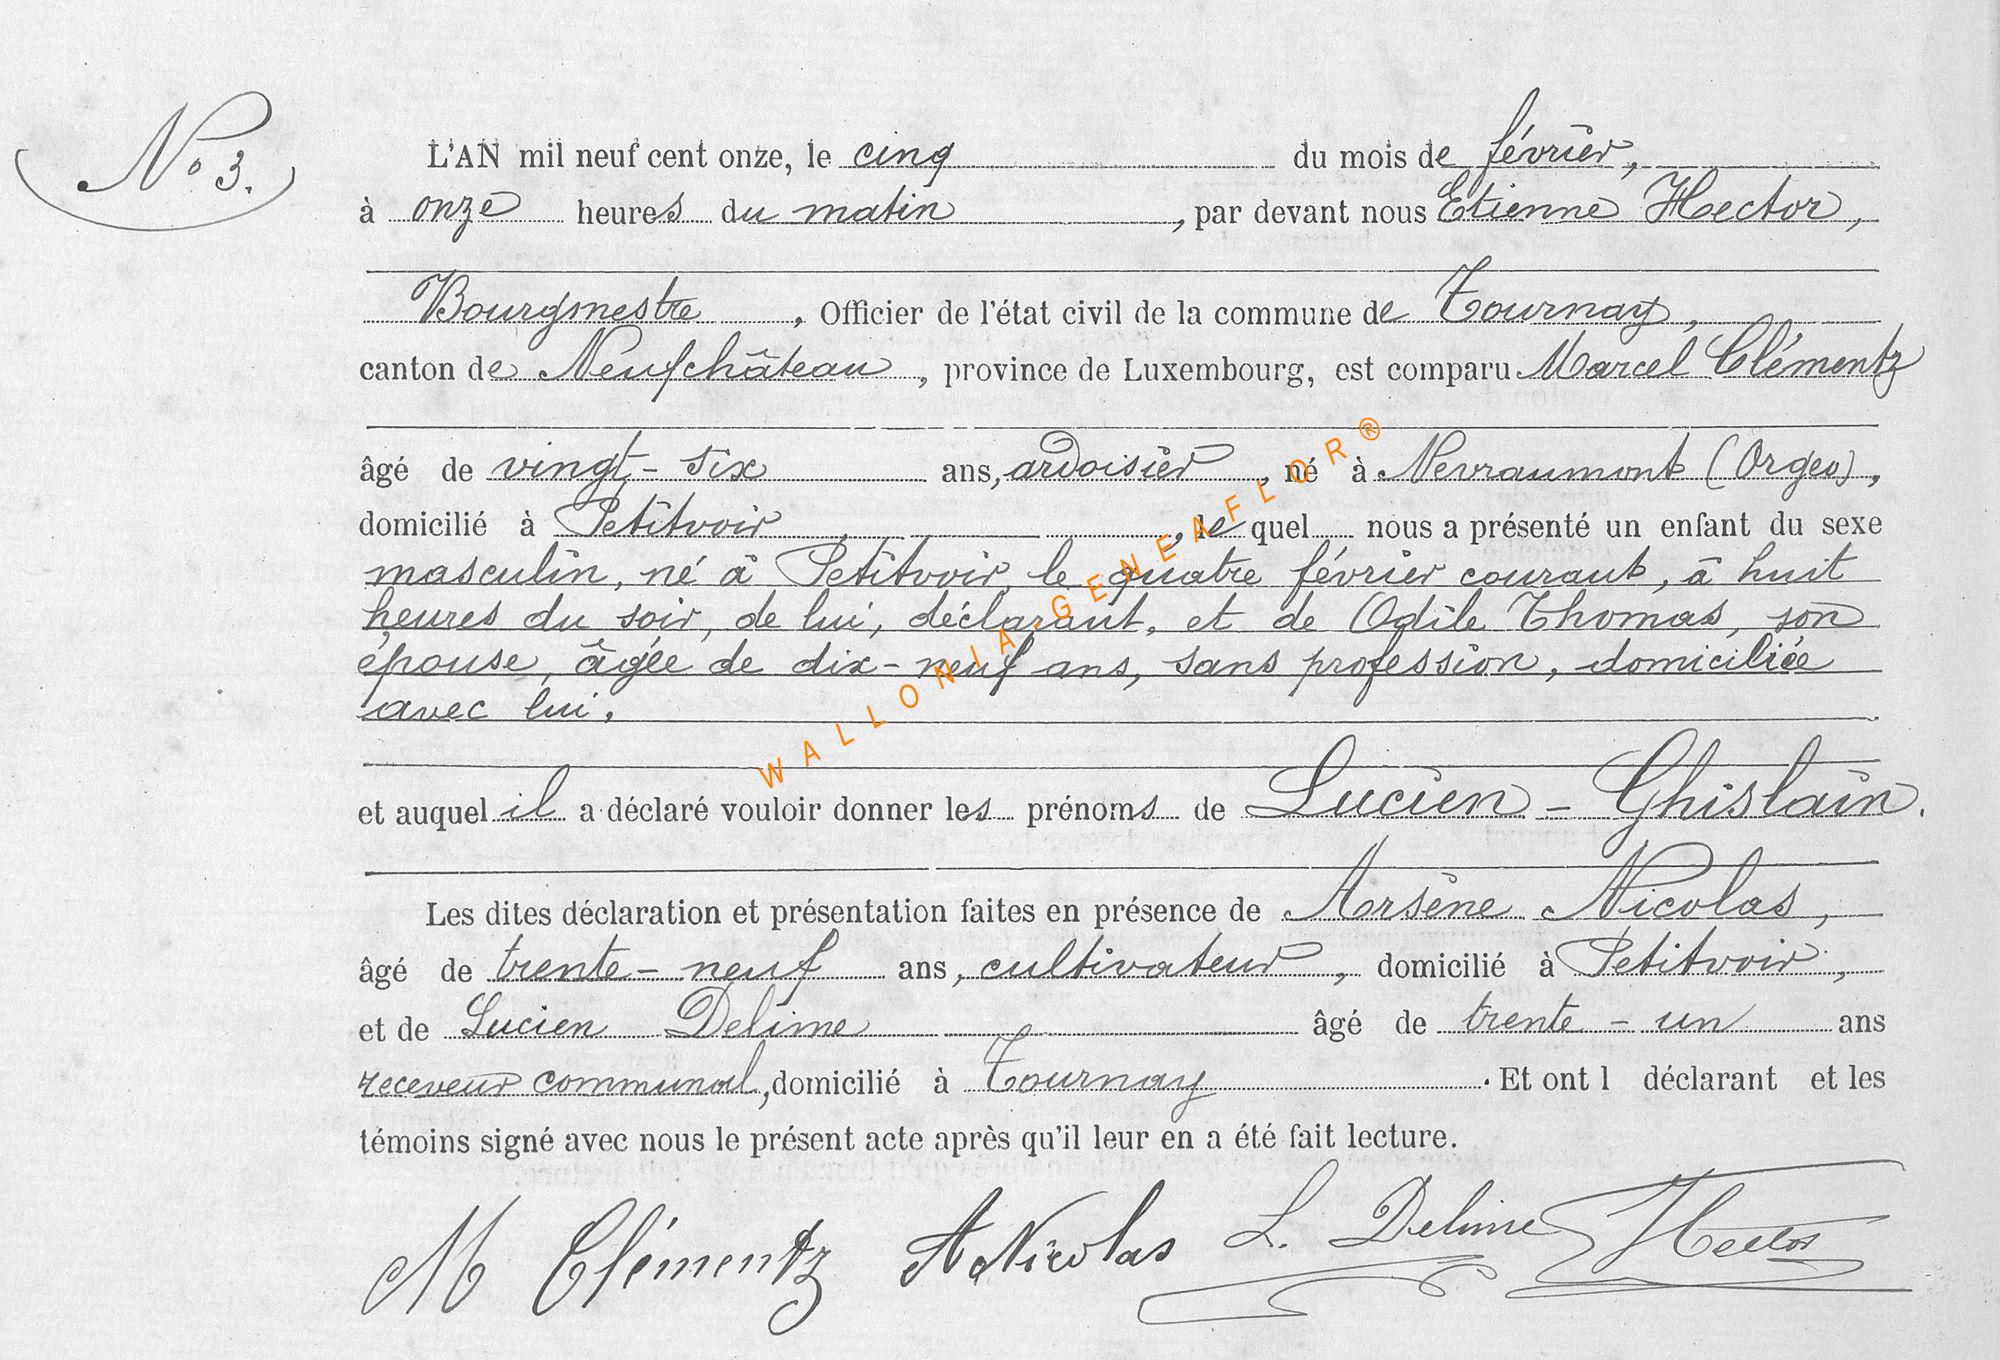 No 3.
L'AN mil neuf cent onze, le cinq du mois de février,
à onze heures du matin, par devant nous Etienne Hector,
Bourgmestre, Officier de l'état civil de la commune de Tournay,
canton de Neufchâteau, province de Luxembourg, est comparu Marcel Clémentz
âgé de vingt-six ans, ardoisier, né à Nevraumont (Orgeo),
domicilié à Petitvoir, lequel nous a présenté un enfant du sexe
masculin, né à Petitvoir, le quatre février courant, à huit
heures du soir, de lui, déclarant, et de Odile Thomas, son
épouse, âgée de dix-neuf ans, sans profession, domiciliée
avec lui.
et auquel il a déclaré vouloir donner les prénoms de Lucien-Ghislain.
Les dites déclaration et présentation faites en présence de Arsène Nicolas,
âgé de trente-neuf ans, cultivateur, domicilié à Petitvoir,
et de Lucien Delime âgé de trente-un ans
receveur communal, domicilié à Tournay. Et ont l déclarant et les
témoins signé avec nous le présent acte après qu'il leur en a été fait lecture.
M Clémentz A Nicolas L. Delime Hector
WALLONIA.GENEAFLOR®